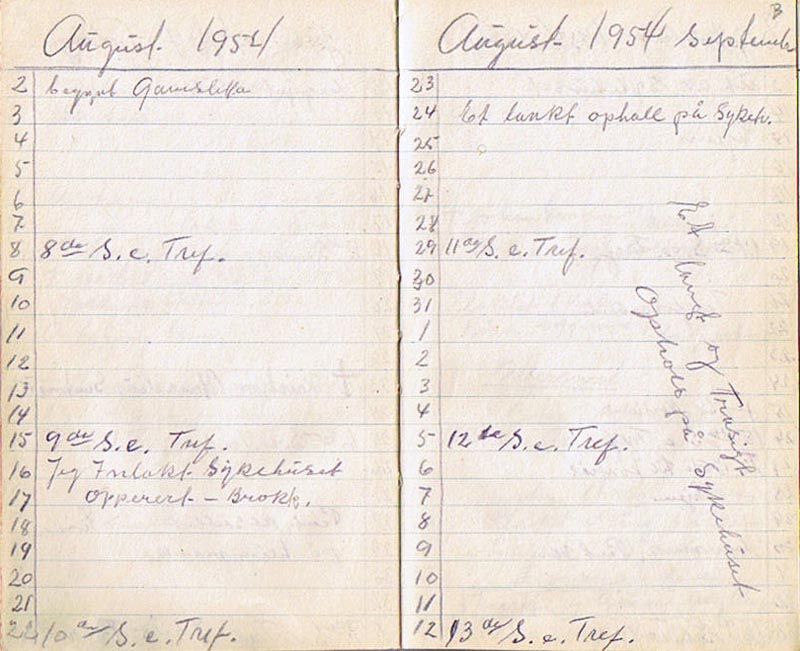 August 1954
2 bygget Gamsletta
3
4
5
6
7
8 8de S. e. Tref.
9
10
11
12
13
14
15 9de S. e. Tref.
16 Jeg Inlakt Sykehuset
17 Opperert – Brokk.
18
19
20
21
22 10de S. e. Tref.
3
August 1954 Septemb
23
24 Et lankt ophall på Sykeh.
25
26
27
28
29 11de S. e. Tref.
30
31
1
2
3
4
5 12te S. e. Tref.
6
7
8
9
10
11
12 13de S. e. Tref.
Et langt og Trasigt
Ophold på Sykehuset